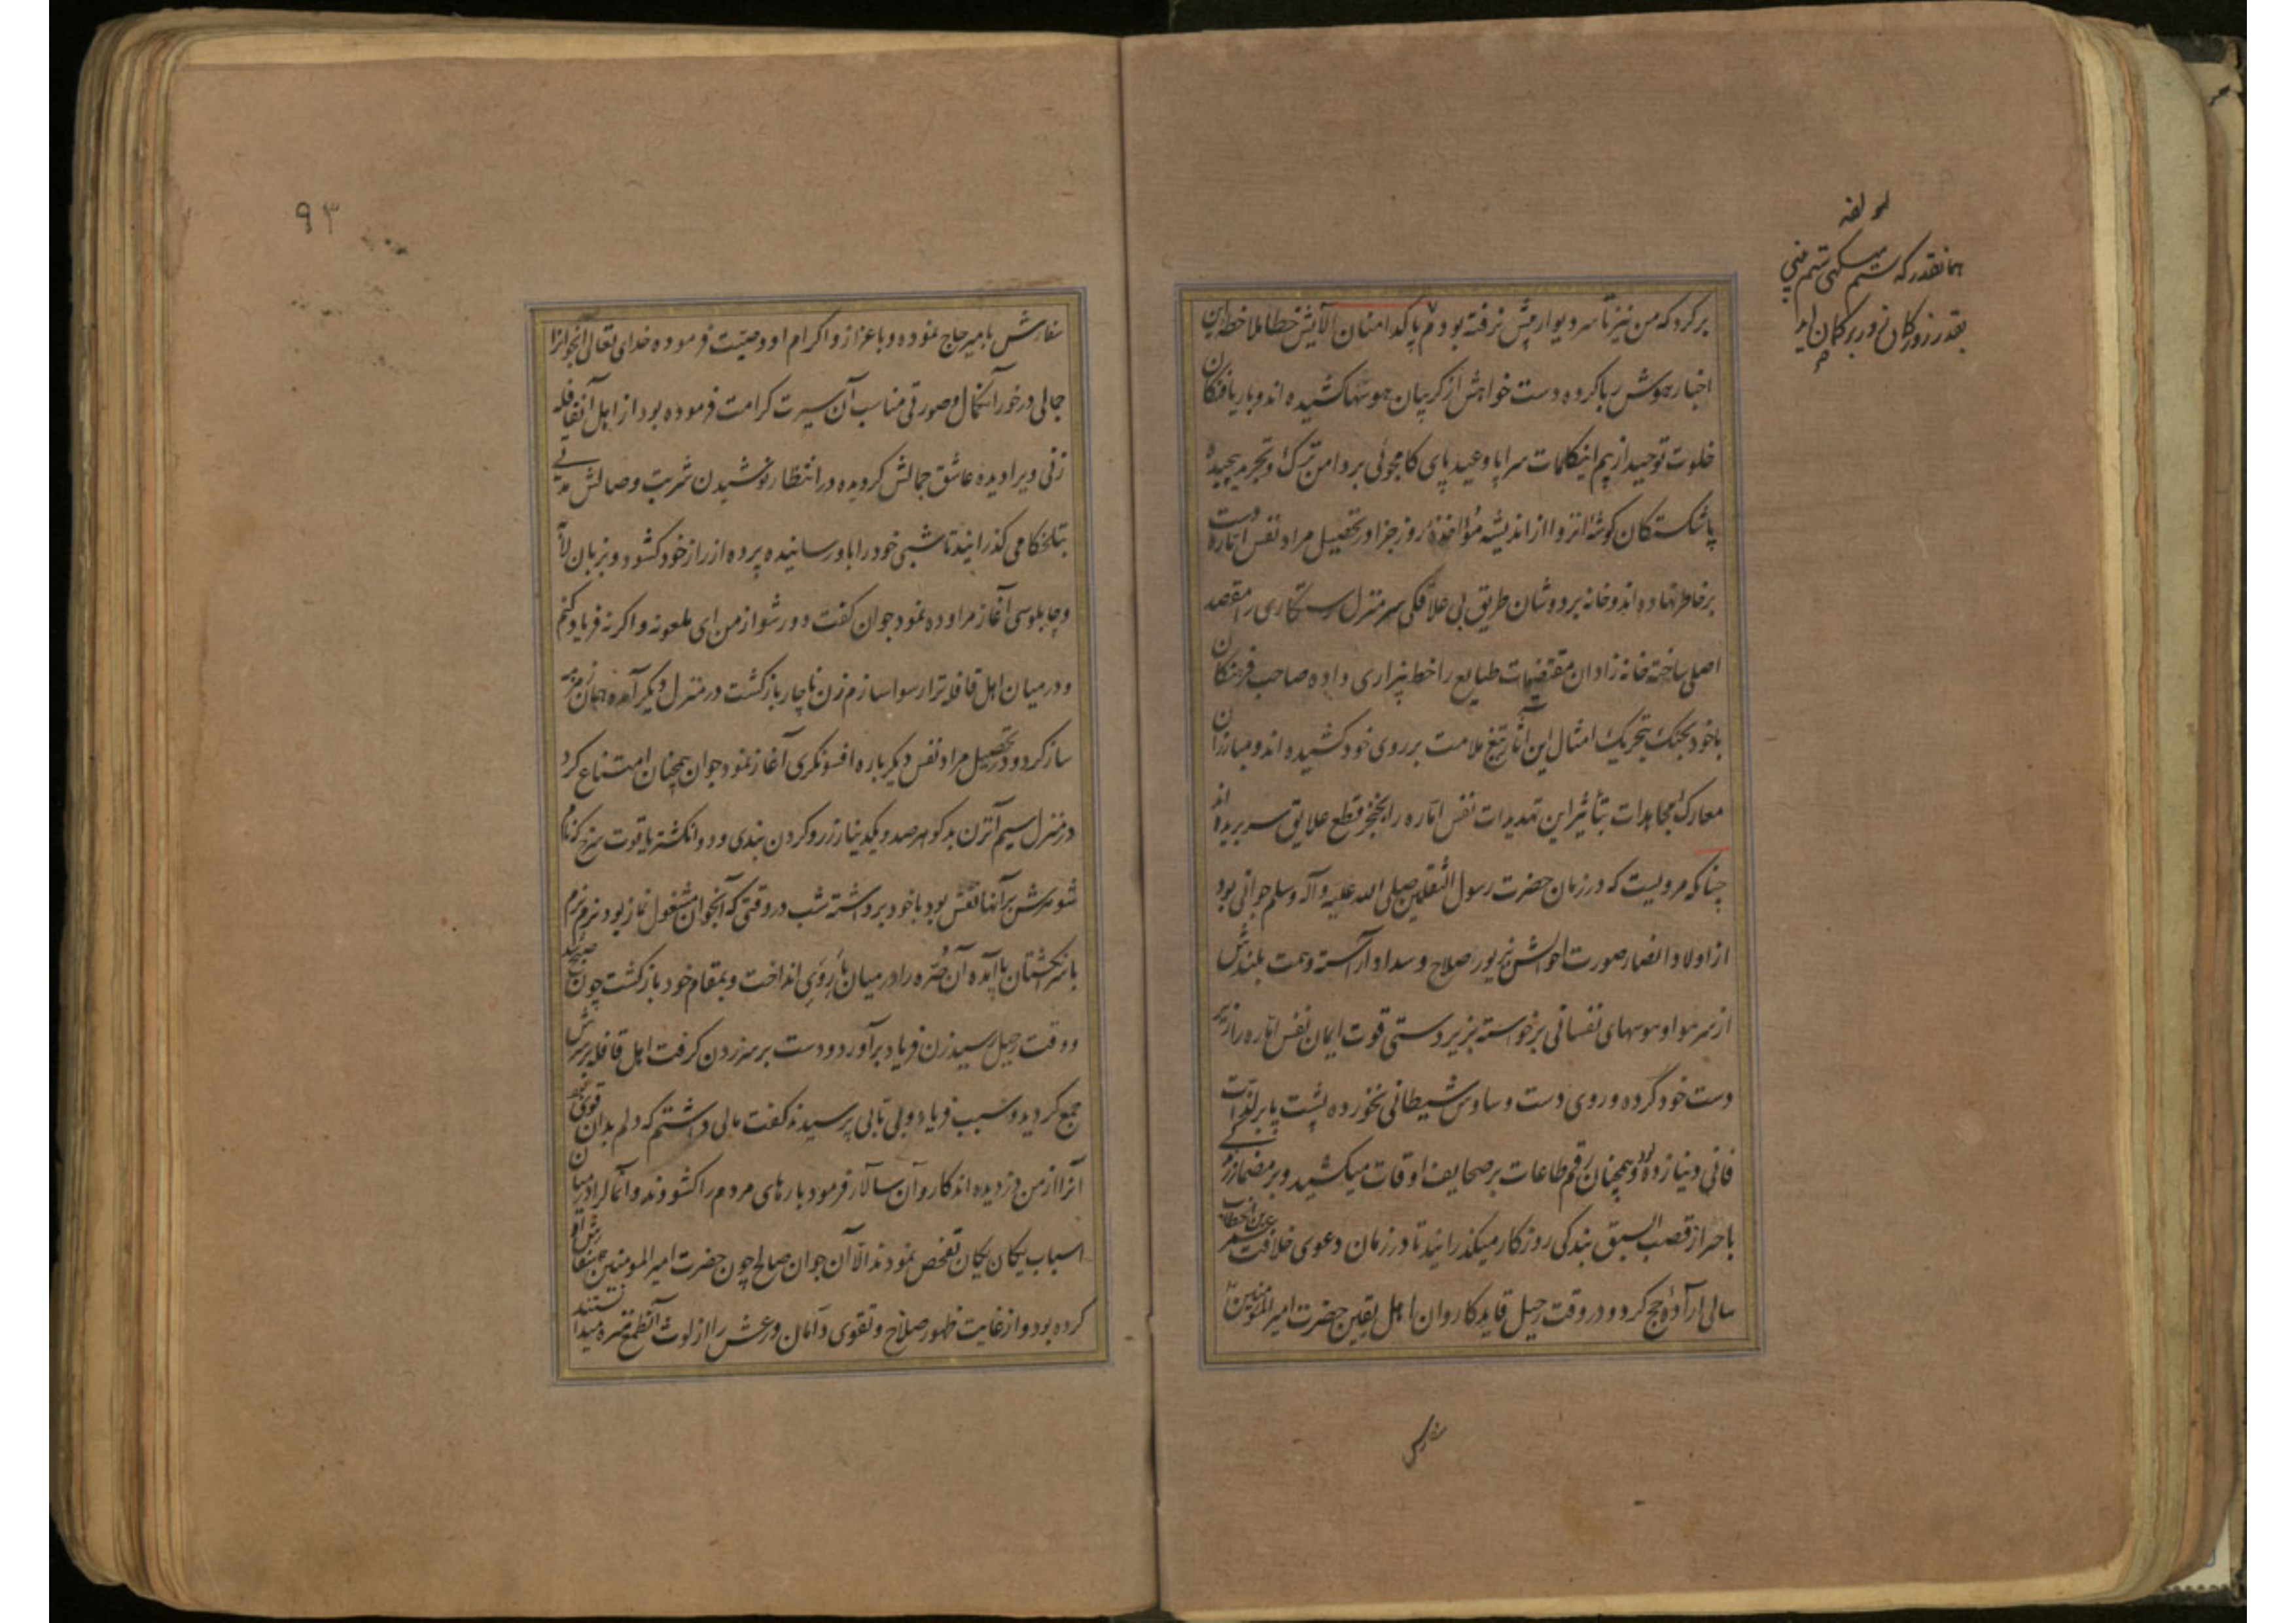 لمولفه
همانقدر که ستم میکنی ستم بینی
بقدر زور کمان زور بر کمان آید
بر کرد که من نیز تا سر دیوار پیش نرفته بودم پاکدامنان آلایش خطا ملاحظه این
اخبار هوش ربا کرده دست خواهش از گریبان هوسها کشیده اند و باریافتگان
خلوت توحید از بیم اینکلمات سراپا وعید پای کامجوئی بر دامن ترک و تجرید پیچیده
پاشکستگان گوشه انزوا از اندیشه مؤاخذه روز جزا در تحصیل مراد نفس اماره دست
بر خاطر نهاده اند و خانه بر دوشان طریق بی علاقگی سر منزل رستگاری را مقصد
اصلی ساخته خانه زادان مقتضیات طبایع را خط بیزاری داده صاحب فرهنگان
باخود بجنگ بتحریک امثال این آثار تیغ ملامت بر روی خود کشیده اند و مبارزان
معارک مجاهدات بتأثیر این تهدیدات نفس اماره را بخنجر قطع علایق سر بریده اند
چنانکه مرویست که در زمان حضرت رسول الثقلین صلی الله علیه و آله وسلم جوانی بود
از اولاد انصار صورت احوالش بزیور صلاح و سداد آراسته و همت بلندش
از سر هوا و هوسهای نفسانی برخواسته بزیردستی قوت ایمان نفس اماره را زیر
دست خود کرده و روی دست وساوس شیطانی نخورده پشت پا بر لذات
فانی دنیا زده بود و همچنان رقم طاعات بر صحایف اوقات میکشید و بر مضمار زندگی
باحراز قصب السبق بندگی روزگار میگذرانید تا در زمان دعوی خلافت عمر بن الخطاب
سالی ارادهٔ حج کرد و در وقت رحیل قاید کاروان اهل یقین حضرت امیرالمؤمنین
سفارش
۹۳
سفارش بامیر حاج نموده و باعزاز و اکرام او وصیت فرموده خدای تعالی آنجوانرا
جمالی در خور آنکمال و صورتی مناسب آن سیرت کرامت فرموده بود از اهل آنقافله
زنی ویرا دیده عاشق جمالش گردیده در انتظار نوشیدن شربت وصالش مدتی
بتلخکامی گذرانید تا شبی خود را باو رسانیده پرده از راز خود گشود و بزبان لابه
و چاپلوسی آغاز مراوده نمود جوان گفت دور شو از من ای ملعونه و اگر نه فریاد کنم
و در میان اهل قافله ترا رسوا سازم زن ناچار بازگشت در منزل دیگر آمده همان زمزمه
ساز کرد و در تحصیل مراد نفس دیگر باره افسونگری آغاز نمود جوان همچنان امتناع کرد
در منزل سیم آنزن بدگوهر صد و یکدینار زر و گردن بندی و دو انگشتر یاقوت سرخ که نام
شوهرش بر آنها نقش بود باخود برداشته شب در وقتی که آنجوان مشغول نماز بود نرم نرم
بسر انگشتان پا آمده آن صره را در میان بار وی انداخت و بمقام خود بازگشت چون صبح شد
و وقت رحیل رسید زن فریاد برآورد و دست بر سر زدن گرفت اهل قافله بر سرش
جمع گردیده و سبب فریاد و بی تابی پرسیدند گفت مالی داشتم که دلم بدان قوی بود
آنرا از من دزدیده اند کاروان سالار فرمود بارهای مردم را گشودند و آنمال را در میان
اسباب یکان یکان تفحص نمودند الا آن جوان صالح چون حضرت امیرالمومنین سفارش او
کرده بود و از غایت ظهور صلاح و تقوی دامان ورعش را از لوث آنطمع منزه میدانستند